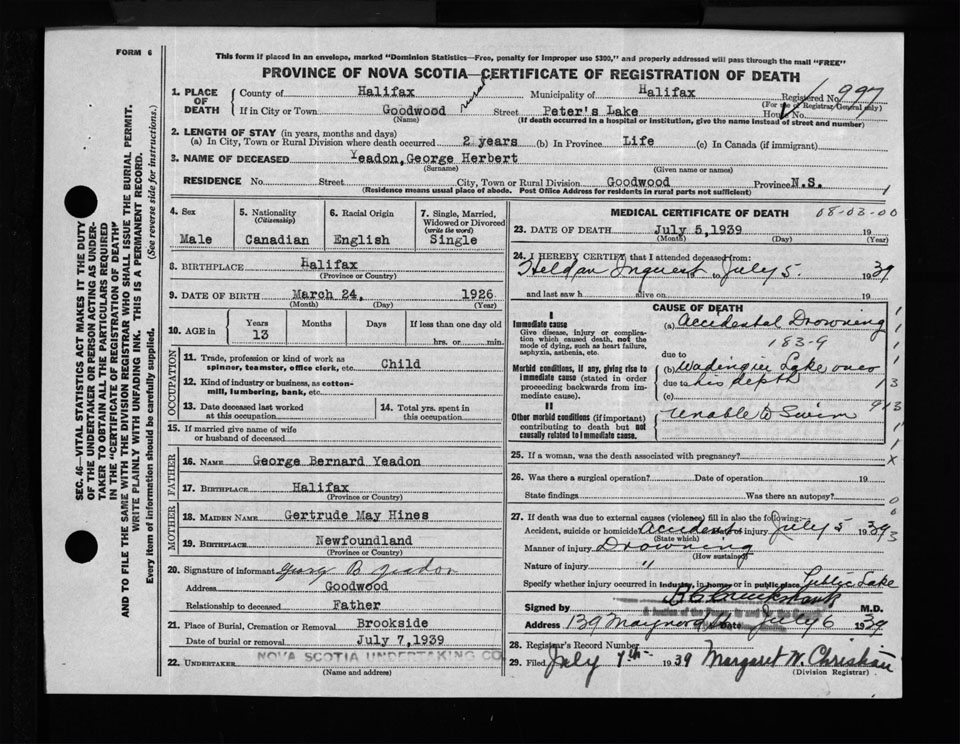 FORM 6
This form if placed in an envelope, marked "Dominion Statistics—Free, penalty for improper use $300," and properly addressed will pass through the mail "FREE"
PROVINCE OF NOVA SCOTIA—CERTIFICATE OF REGISTRATION OF DEATH
1. PLACE OF DEATH
County of Halifax Municipality of Halifax Registered No. 997
(For use of Registrar General only)
If in City or Town Goodwood rural Street Peter's Lake House No.
(Name) (If death occurred in a hospital or institution, give the name instead of street and number)
2. LENGTH OF STAY (in years, months and days)
(a) In City, Town or Rural Division where death occurred 2 years (b) In Province Life (c) In Canada (if immigrant)
3. NAME OF DECEASED Yeadon, George Herbert
(Surname) (Given name or names)
RESIDENCE No. Street City, Town or Rural Division Goodwood Province N.S. 1
(Residence means usual place of abode. Post Office Address for residents in rural parts not sufficient)
4. Sex
Male
5. Nationality
(Citizenship)
Canadian
6. Racial Origin
English
7. Single, Married, Widowed or Divorced
(write the word)
Single
8. BIRTHPLACE Halifax
(Province or Country)
9. DATE OF BIRTH March 24, 1926
(Month) (Day) (Year)
10. AGE in
Years Months Days If less than one day old
13 hrs. or min.
OCCUPATION
11. Trade, profession or kind of work as spinner, teamster, office clerk, etc. Child
12. Kind of industry or business, as cotton-mill, lumbering, bank, etc.
13. Date deceased last worked at this occupation
14. Total yrs. spent in this occupation
15. If married give name of wife or husband of deceased
FATHER
16. NAME George Bernard Yeadon
17. BIRTHPLACE Halifax
(Province or Country)
MOTHER
18. MAIDEN NAME Gertrude May Hines
19. BIRTHPLACE Newfoundland
(Province or Country)
20. Signature of informant George B Yeadon
Address Goodwood
Relationship to deceased Father
21. Place of Burial, Cremation or Removal Brookside
Date of burial or removal July 7,1939
22. UNDERTAKER NOVA SCOTIA UNDERTAKING CO
(Name and address)
MEDICAL CERTIFICATE OF DEATH 08-03-00
23. DATE OF DEATH July 5,1939 19
(Month) (Day) (Year)
24. I HEREBY CERTIFY that I attended deceased from:
Held an Inquest to July 5 1939
and last saw h alive on 19
CAUSE OF DEATH
I
Immediate cause
Give disease, injury or complication which caused death, not the mode of dying, such as heart failure, asphyxia, asthenia, etc.
(a) Accidental Drowning
183-9
due to
Morbid conditions, if any, giving rise to immediate cause (stated in order proceeding backwards from immediate cause).
(b) Wading in Lake over
due to his depth
(c)
II
Other morbid conditions (if important) contributing to death but not causally related to immediate cause.
Unable to Swim
25. If a woman, was the death associated with pregnancy?
26. Was there a surgical operation? Date of operation 19
State findings Was there an autopsy?
27. If death was due to external causes (violence) fill in also the following:—
Accident, suicide or homicide Accident of injury July 5 1939
(State which)
Manner of injury Drowning
(How sustained)
Nature of injury "
Specify whether injury occurred in industry, in home, or in public place Public Lake
Signed by M.D.
Address 139 Maynard St Date July 6 1939
28. Registrar's Record Number
29. Filed July 7th 1939 Margaret W. Christian
(Division Registrar)
SEC. 46—VITAL STATISTICS ACT MAKES IT THE DUTY
OF THE UNDERTAKER OR PERSON ACTING AS UNDER-
TAKER TO OBTAIN ALL THE PARTICULARS REQUIRED
IN THE "CERTIFICATE OF REGISTRATION OF DEATH"
AND TO FILE THE SAME WITH THE DIVISION REGISTRAR WHO SHALL ISSUE THE BURIAL PERMIT.
WRITE PLAINLY WITH UNFADING INK. THIS IS A PERMANENT RECORD.
Every item of information should be carefully supplied. (See reverse side for instructions.)